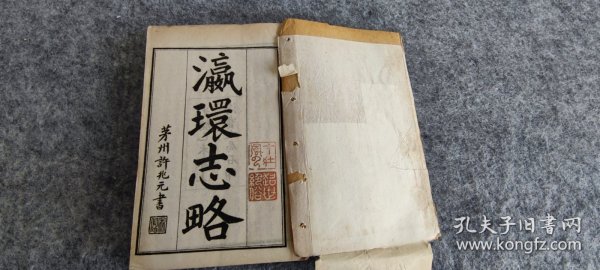 瀛環志略
茅州許兆元書
孔夫子旧书网
www.kongfz.com